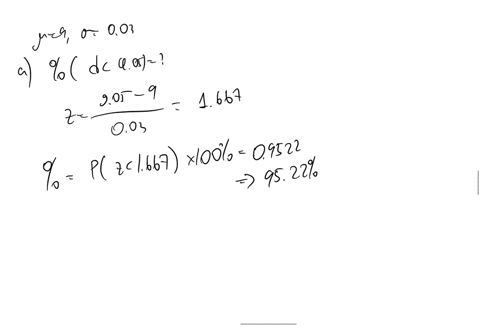 μ=9, σ= 0.03
a) %( d< 9.05)=?
z= (9.05-9)/0.03 = 1.667
% = P( z<1.667) ×100% = 0.9522
=> 95.22%